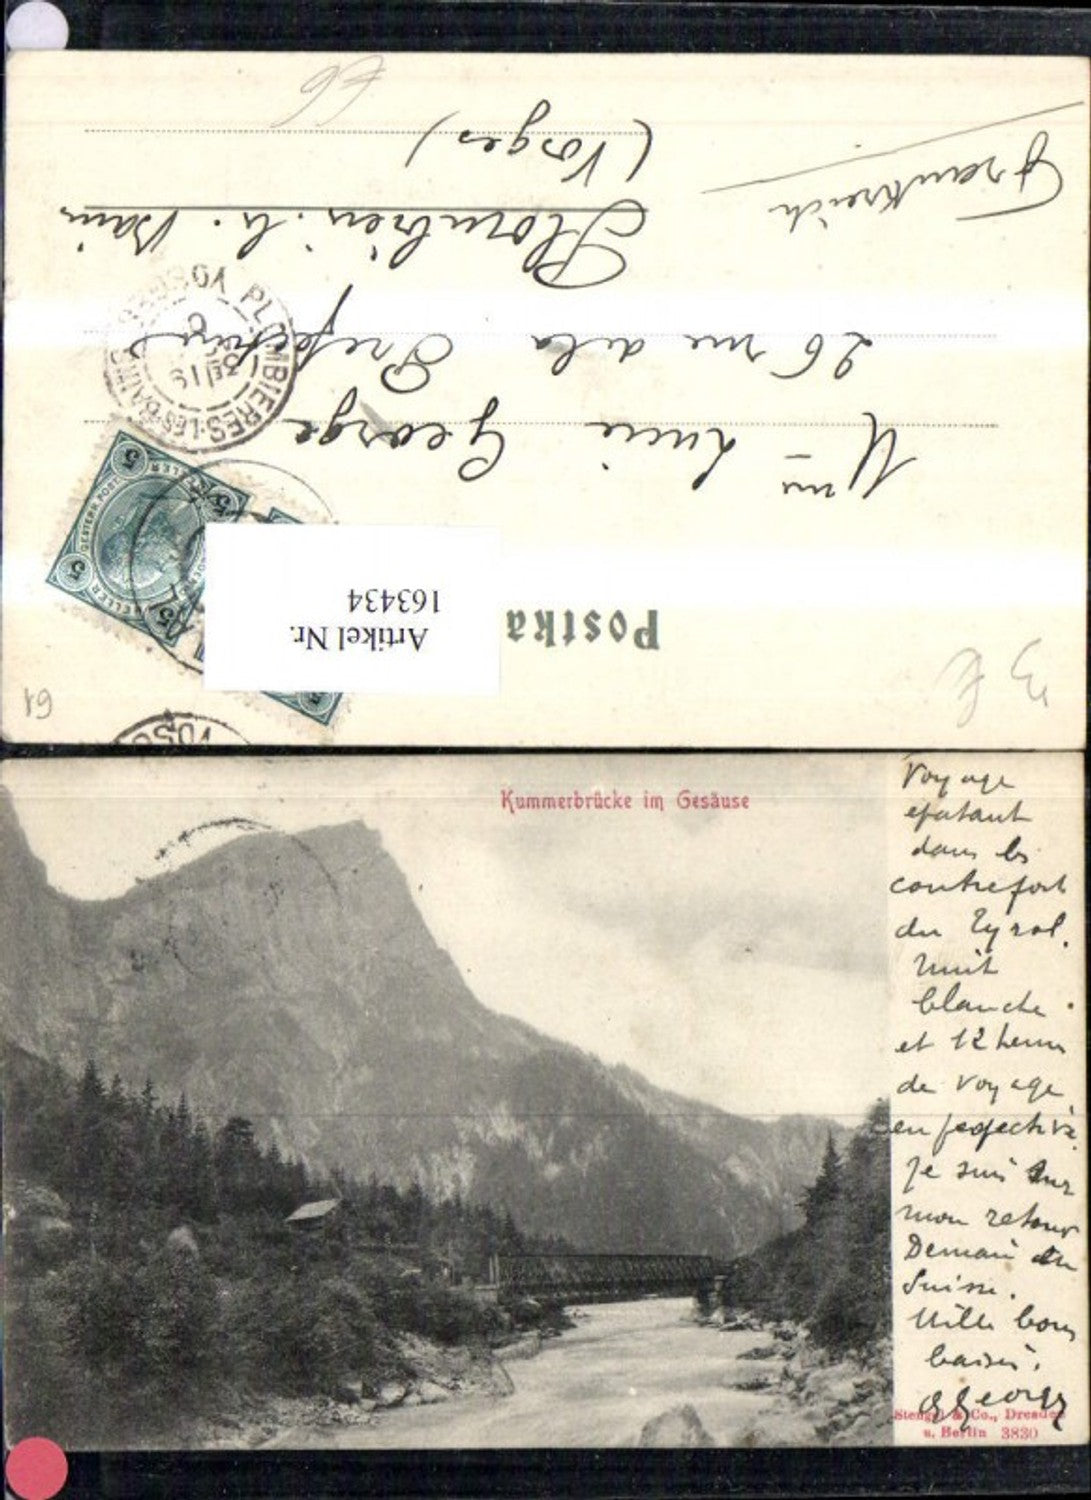 Postka
Artikel Nr.
163434
Mme Lucie George
26 rue de la Prefecture
Plombières. l. Bains
(Vosges)
Frankreich
PLOMBIERES-LES-BAINS VOSGES
5 HELLER 5
OESTERR. POST
61
Kummerbrücke im Gesäuse
Voyage
epatant
dans les
contrefort
du Tyrol.
Nuit
blanche.
et 12 heures
de voyage,
en perspective.
Je suis sur
mon retour
Demain en
Suisse.
Mille bons
baisers.
George
Stengel & Co., Dresden
u. Berlin 3830